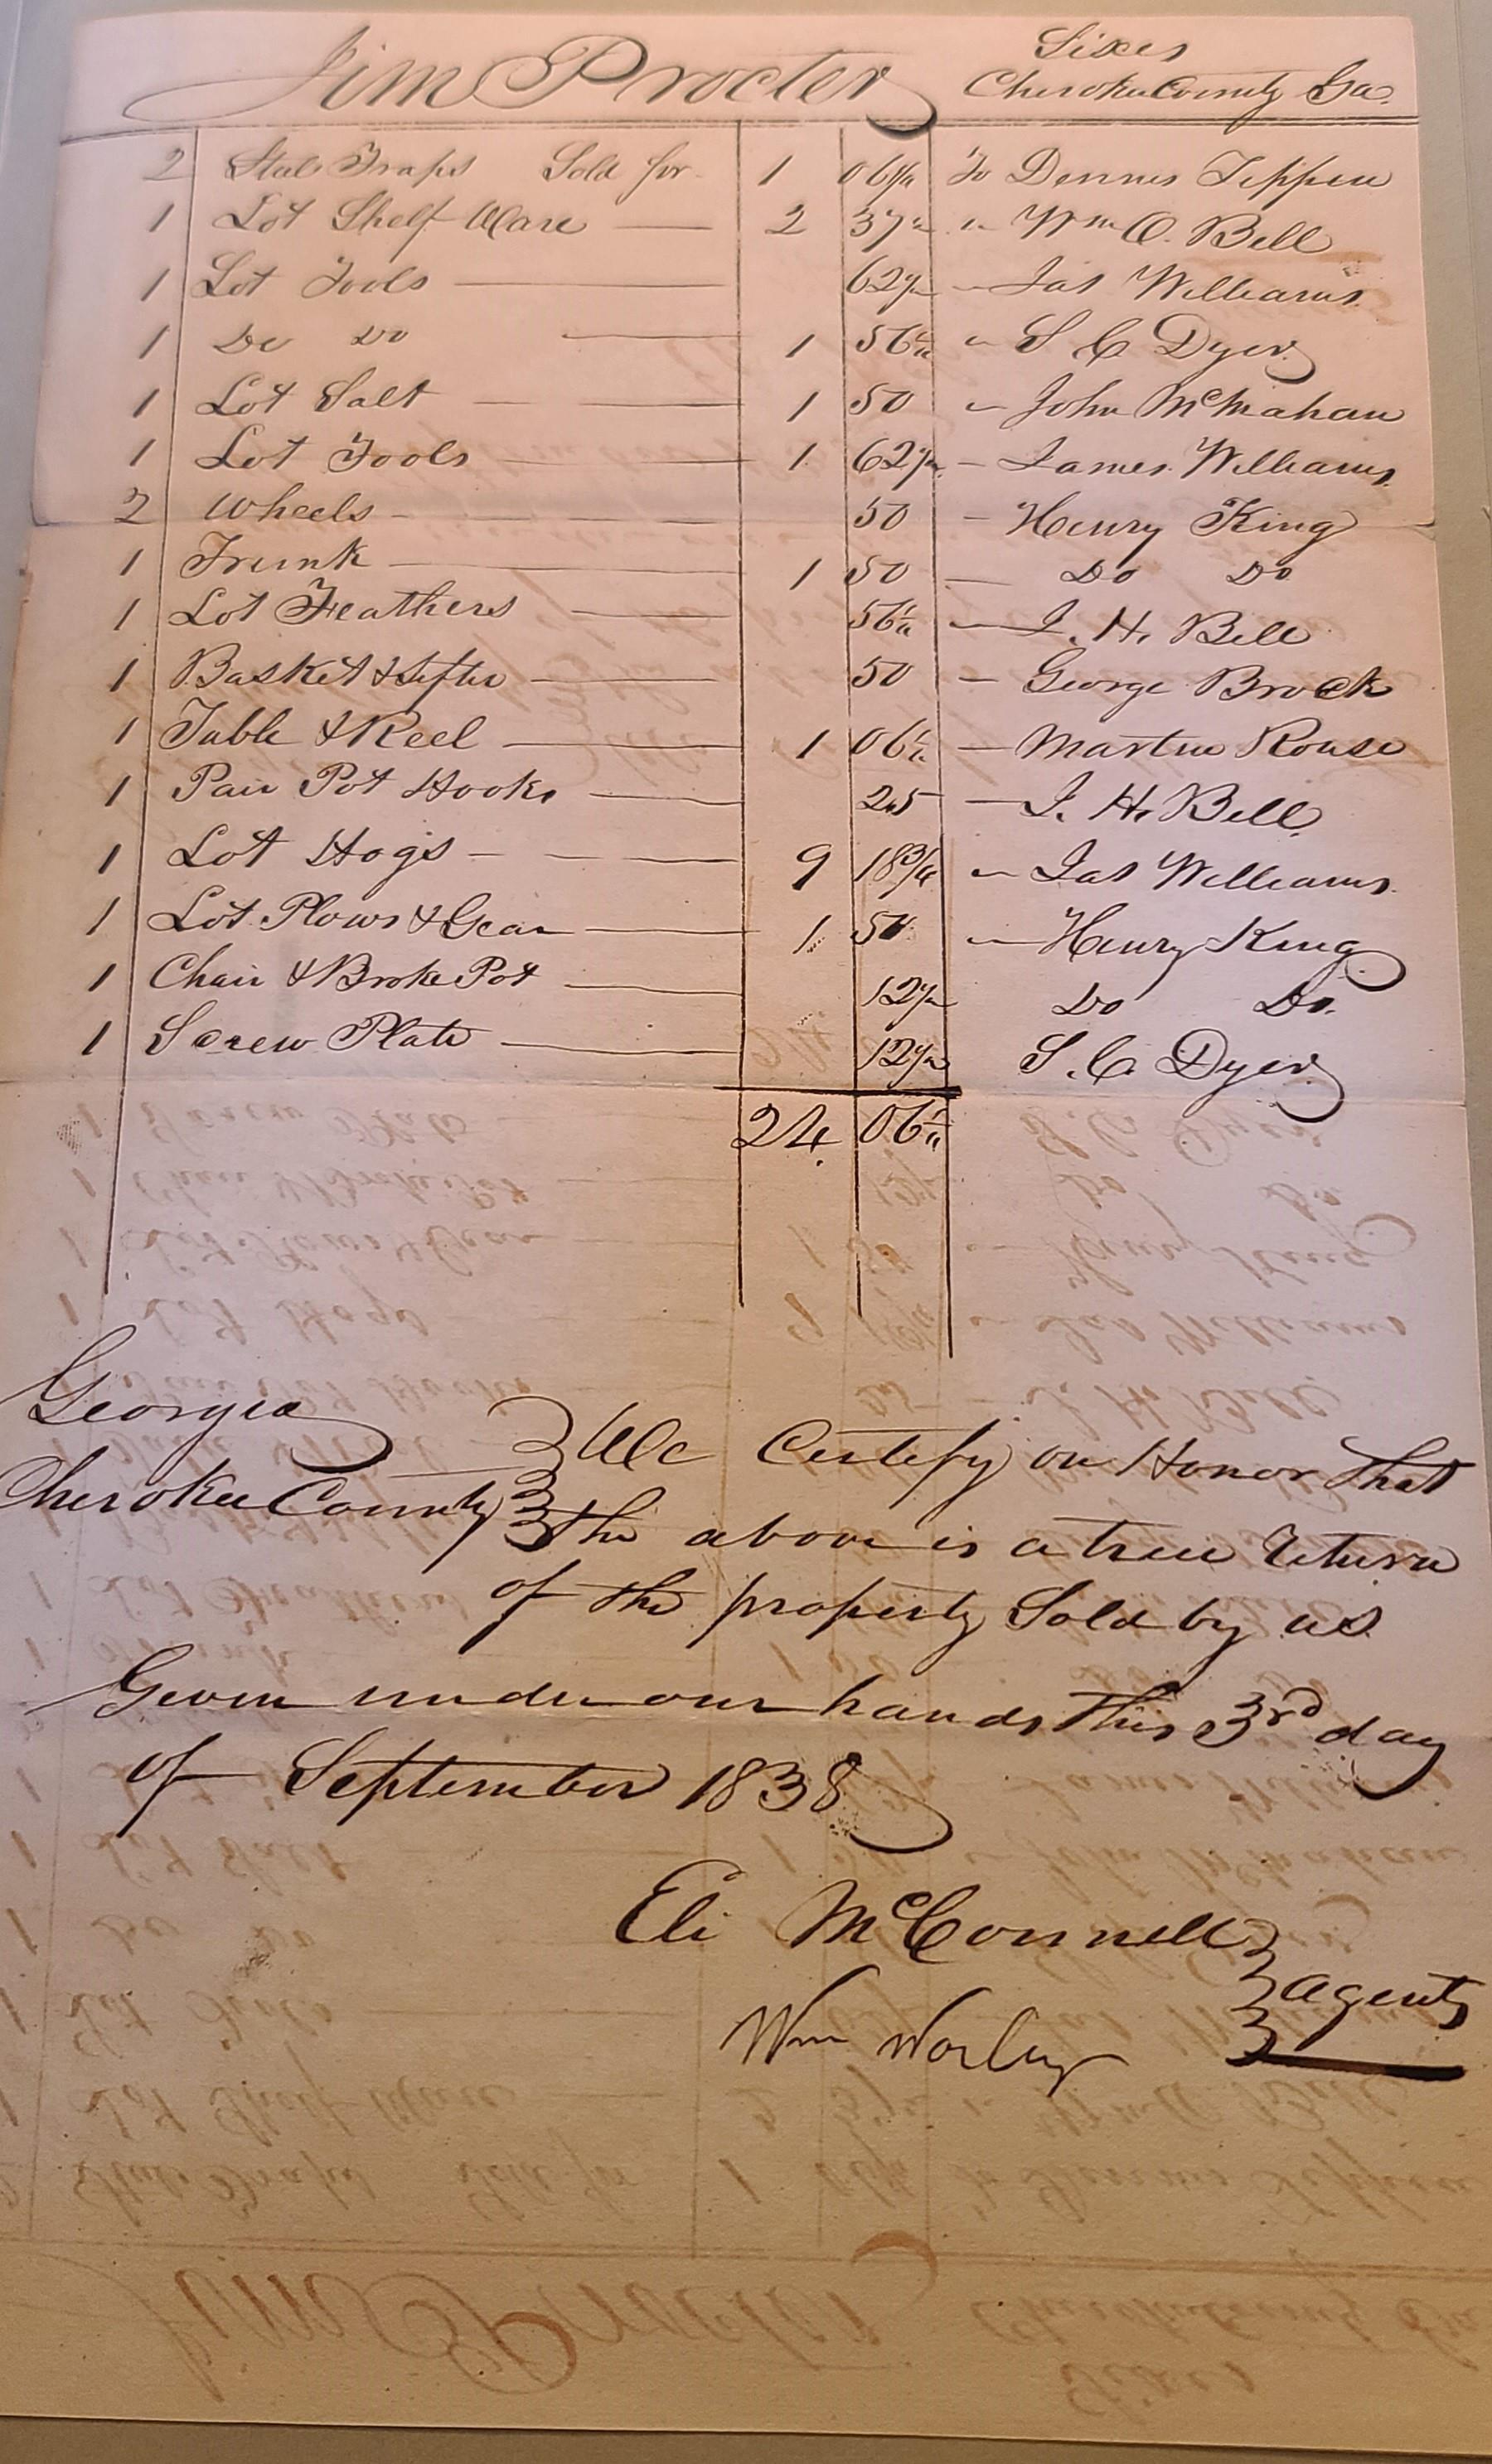 Jim Procter Sixes
Cherokee County Ga.
2 Steel Traps Sold for 1 06 1/4 To Dennis Tippen
1 Lot Shelf Ware — 2 37 1/2 " Wm O. Bell
1 Lot Tools — 62 1/2 " Jas Williams
1 Do Do — 1 56 1/4 " S C Dyer
1 Lot Salt — 1 50 " John McMahan
1 Lot Tools — 1 62 1/2 — James Williams
2 Wheels — 50 — Henry King
1 Trunk — 1 50 — Do Do
1 Lot Feathers — 56 1/4 — J. H. Bell
1 Basket & Sifter — 50 — George Brock
1 Table & Reel — 1 06 1/4 — Martin Rouse
1 Pair Pot Hooks — 25 — J. H. Bell
1 Lot Hogs — 9 18 3/4 " Jas Williams
1 Lot Plows & Gear — 1 50 " Henry King
1 Chair & Broke Pot — 12 1/2 Do Do.
1 Screw Plate — 12 1/2 S. C. Dyer
24 06 1/4
Georgia
Cherokee County We Certify on Honor That
the above is a true Return
of the property Sold by us
Given under our hands This 3rd day
of September 1838
Eli McConnell
Wm Worley agents